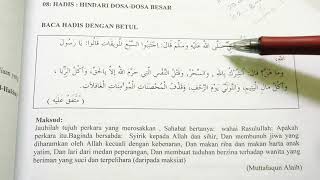 08: HADIS : HINDARI DOSA-DOSA BESAR
BACA HADIS DENGAN BETUL
صلى الله عليه وسلم قال: اجتنبوا السبع الموبقات قالوا: يا رسول
وما هن؟ قال: الشرك بالله، والسحر، وقتل النفس التي حرم الله إلا بالحق، وأكل الربا،
وأكل مال اليتيم، والتولي يوم الزحف، وقذف المحصنات المؤمنات الغافلات.
(متفق عليه)
Maksud:
Jauhilah tujuh perkara yang merosakkan . Sahabat bertanya: wahai Rasulullah: Apakah
perkara itu.Baginda bersabda: Syirik kepada Allah dan sihir, Dan membunuh jiwa yang
diharamkan oleh Allah kecuali dengan kebenaran, Dan makan riba dan makan harta anak
yatim, Dan lari dari medan peperangan, Dan membuat tuduhan berzina terhadap wanita yang
beriman yang suci dan terpelihara (daripada maksiat)
(Muttafaqun Alaih)